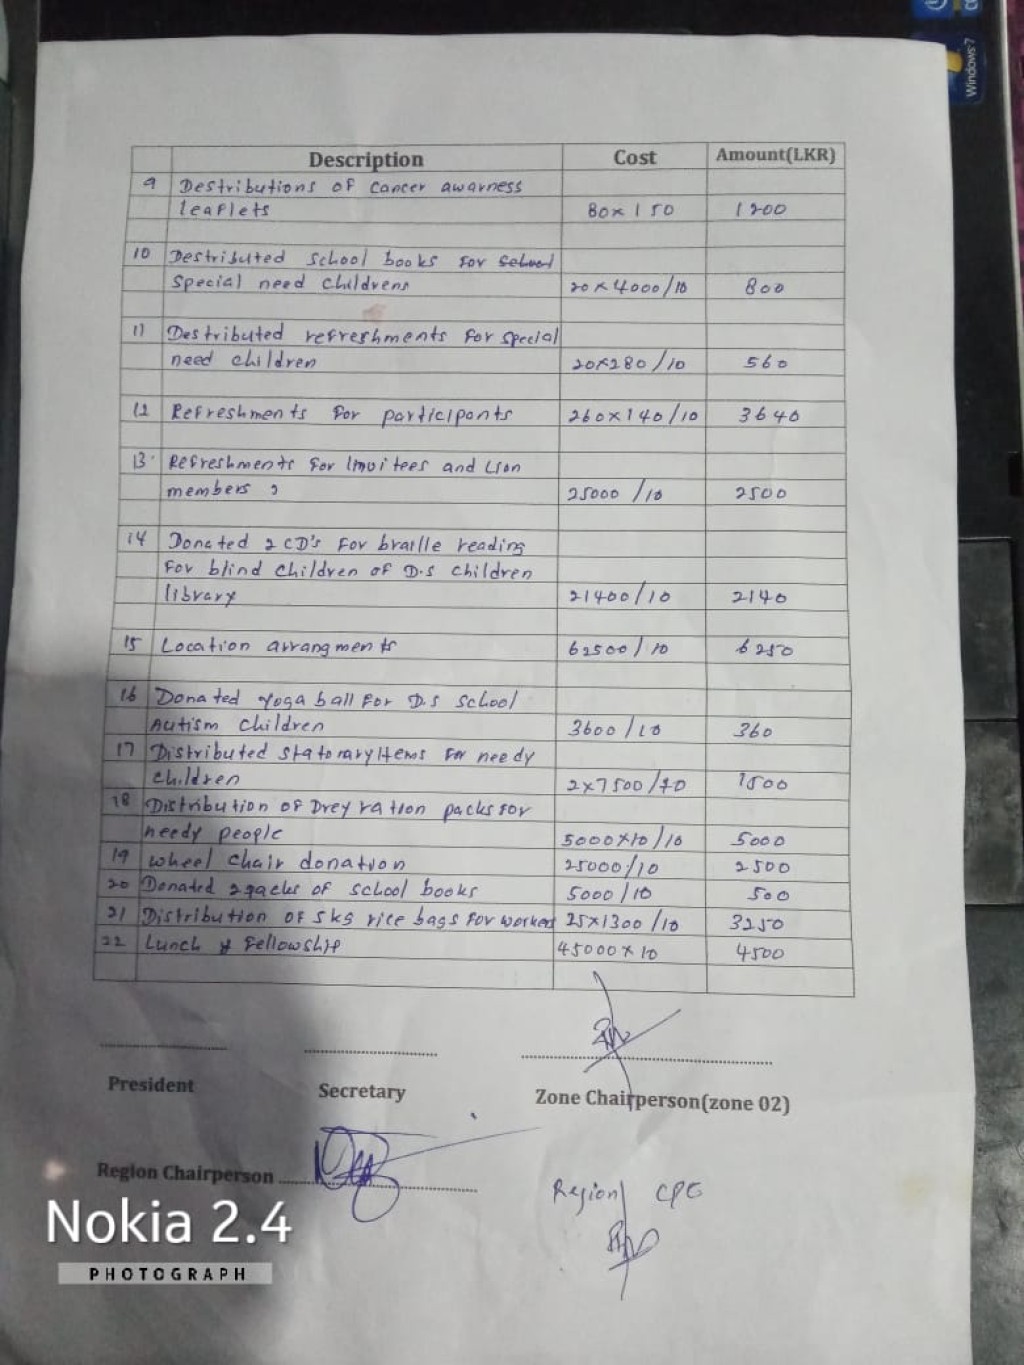 Description Cost Amount(LKR)
9 Destributions of cancer awarness
leaflets 80x150 1200
10 Destributed school books for school
special need childrens 20x4000/10 800
11 Destributed refreshments for special
need children 20x280/10 560
12 Refreshments for participants 260x140/10 3640
13 Refreshments for Imvitees and Lion
members 25000/10 2500
14 Donated 2 CD's for braille reading
for blind children of D.S children
library 21400/10 2140
15 Location arrangments 62500/10 6250
16 Donated yoga ball for D.S school
Autism children 3600/10 360
17 Distributed statonary Items for needy
children 2x7500/10 1500
18 Distribution of Drey ration packs for
needy people 5000x10/10 5000
19 wheel chair donation 25000/10 2500
20 Donated 2 packs of school books 5000/10 500
21 Distribution of 5kg rice bags for workers 25x1300/10 3250
22 Lunch & Fellowship 45000x10 4500
President
Secretary
Zone Chairperson(zone 02)
Region Chairperson
Region
Nokia 2.4
PHOTOGRAPH
Windows 7